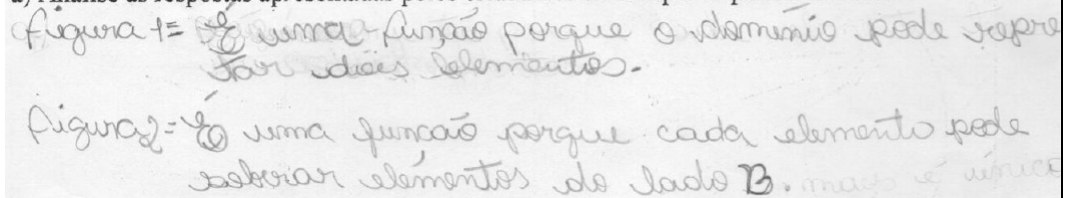 figura 1= É uma função porque o dominio pode repre
tar dois elementos.
figura 2= É uma funcaõ porque cada elemento pode
sobrar elementos do lado B. mas é único